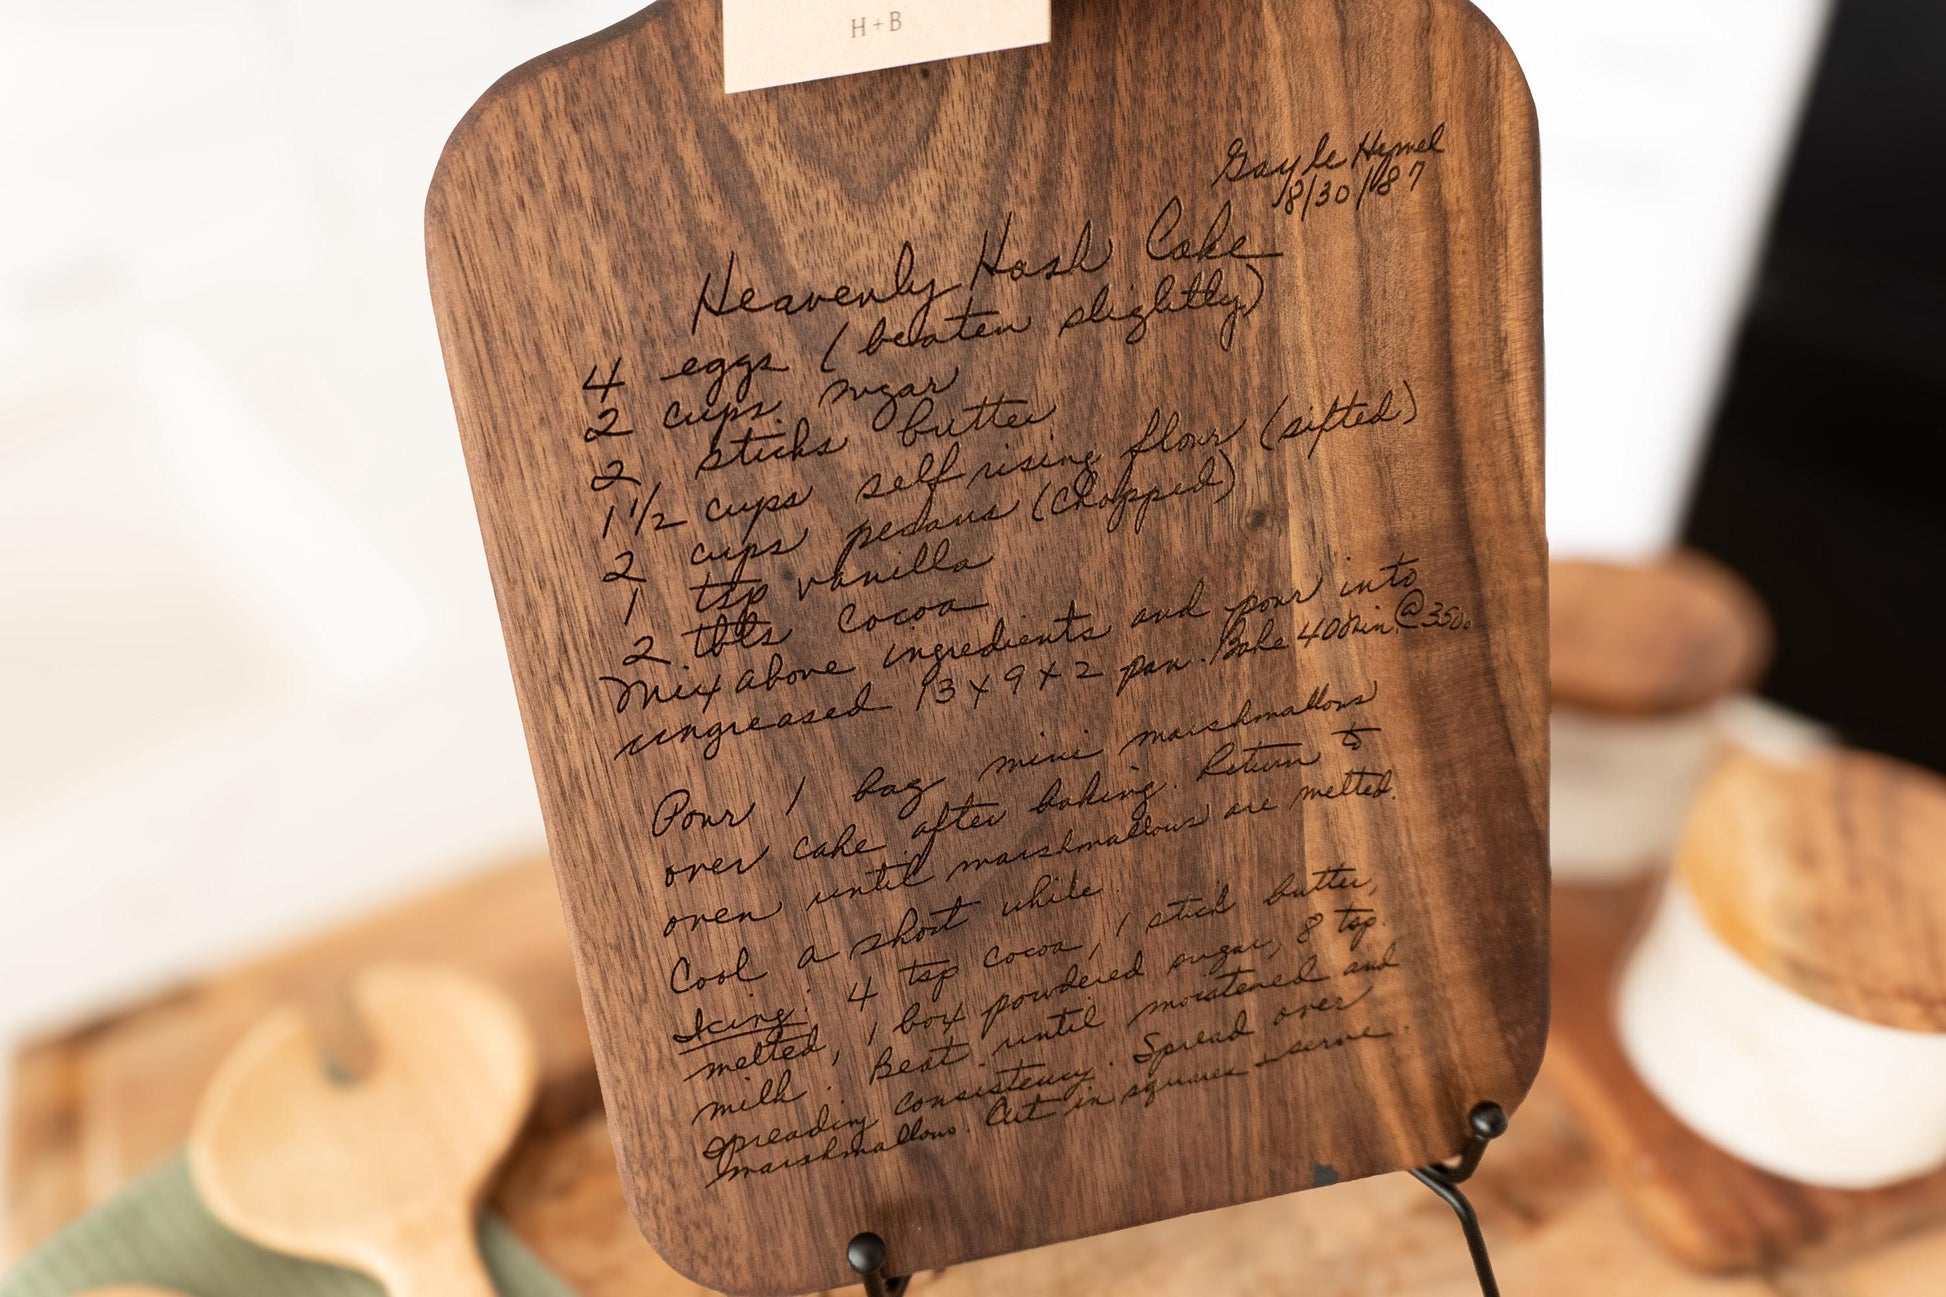 H+B
Gayle Hemel
8/30/87
Heavenly Hash Cake
4 eggs (beaten slightly)
2 cups sugar
2 sticks butter
1 1/2 cups self rising flour (sifted)
2 cups pecans (chopped)
1 tsp vanilla
2 tbls cocoa
Mix above ingredients and pour into
ungreased 13 x 9 x 2 pan. Bake 40 min. @ 350°
Pour 1 bag mini marshmallows
over cake after baking. Return to
oven until marshmallows are melted.
Cool a short while.
Icing: 4 tsp cocoa, 1 stick butter,
melted, 1 box powdered sugar, 8 tsp.
milk. Beat until moistened and
spreading consistency. Spread over
marshmallows. Cut in squares serve.